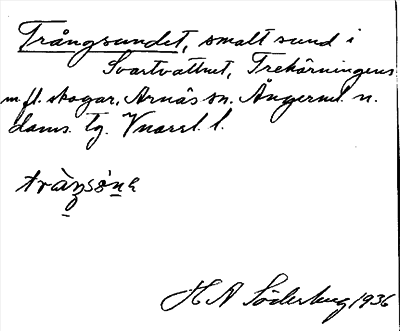 Trångsundet, smalt sund i
Svartvattnet, Trekärningens
m fl. skogar, Arnäs sn. Ångerml. n.
doms. tg. Vnorrl. l.
tràŋsúnɛ
H A Söderberg 1936